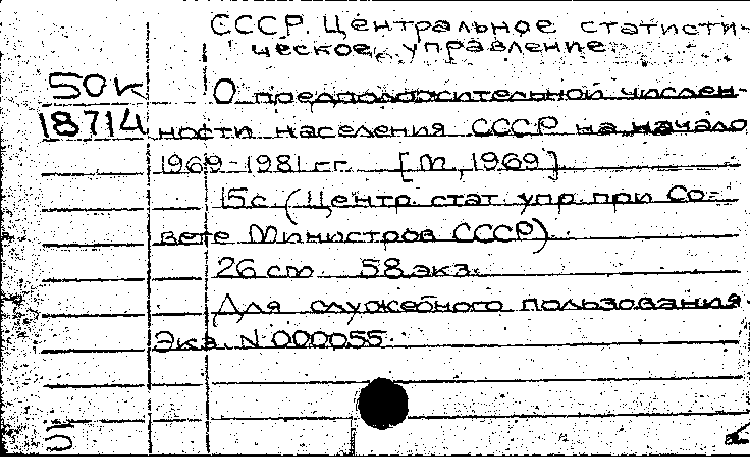 СССР. Центральное статисти-
ческое управление.
50к
18714
О предположительной числен-
ности населения СССР на начало
1969-1981 гг. [М., 1969]
15с. (Центр. стат. упр. при Со-
вете Министров СССР).
26 см. 58 экз.
Для служебного пользования
Экз. N 000055.
5